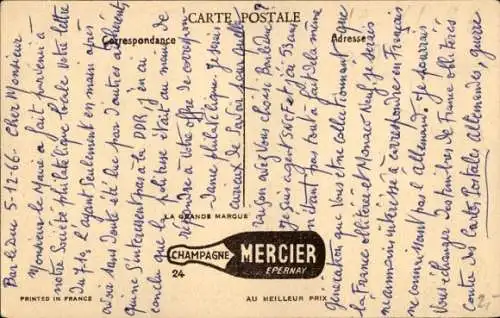 CARTE POSTALE
Correspondance
Adresse
Bar le Duc 5-12-66 Cher Monsieur
Monsieur le Maire a fait parvenir à
notre Société philatélique locale votre lettre
du 7/9, l'ayant seulement en main après
avoir sans doute été lue par d'autres adhérents
qui ne s'intéressent pas à la DDR, j'en ai
conclu que la politesse était au moins de
répondre à votre offre de correspon-
-dance philatélique. Je suis
curieux de savoir pour quelle
raison avez vous choisi Bar le Duc ?
Je suis agent SNCF et j'ai
n'étant pas tout à fait de la même
génération que vous et ne collectionnant que
la France oblitérée et Monaco neuf je serais
néanmoins intéressé à correspondre en Français
ne connaissant pas l'Allemand. Je pourrais
vous échanger des timbres de France oblitérés
contre des Cartes postales allemandes, guerre
LA GRANDE MARQUE
CHAMPAGNE MERCIER
EPERNAY
24
PRINTED IN FRANCE
AU MEILLEUR PRIX